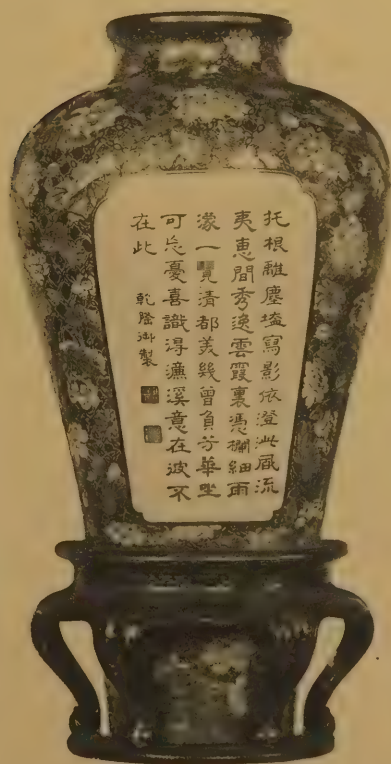 托根離塵壒寫影依澄泚風流
夷惠間秀逸雲霞裏憑欄細雨
濛一清都美幾曾負芳華坐
可忘憂喜識得濂溪意在彼不
在此
乾隆御製